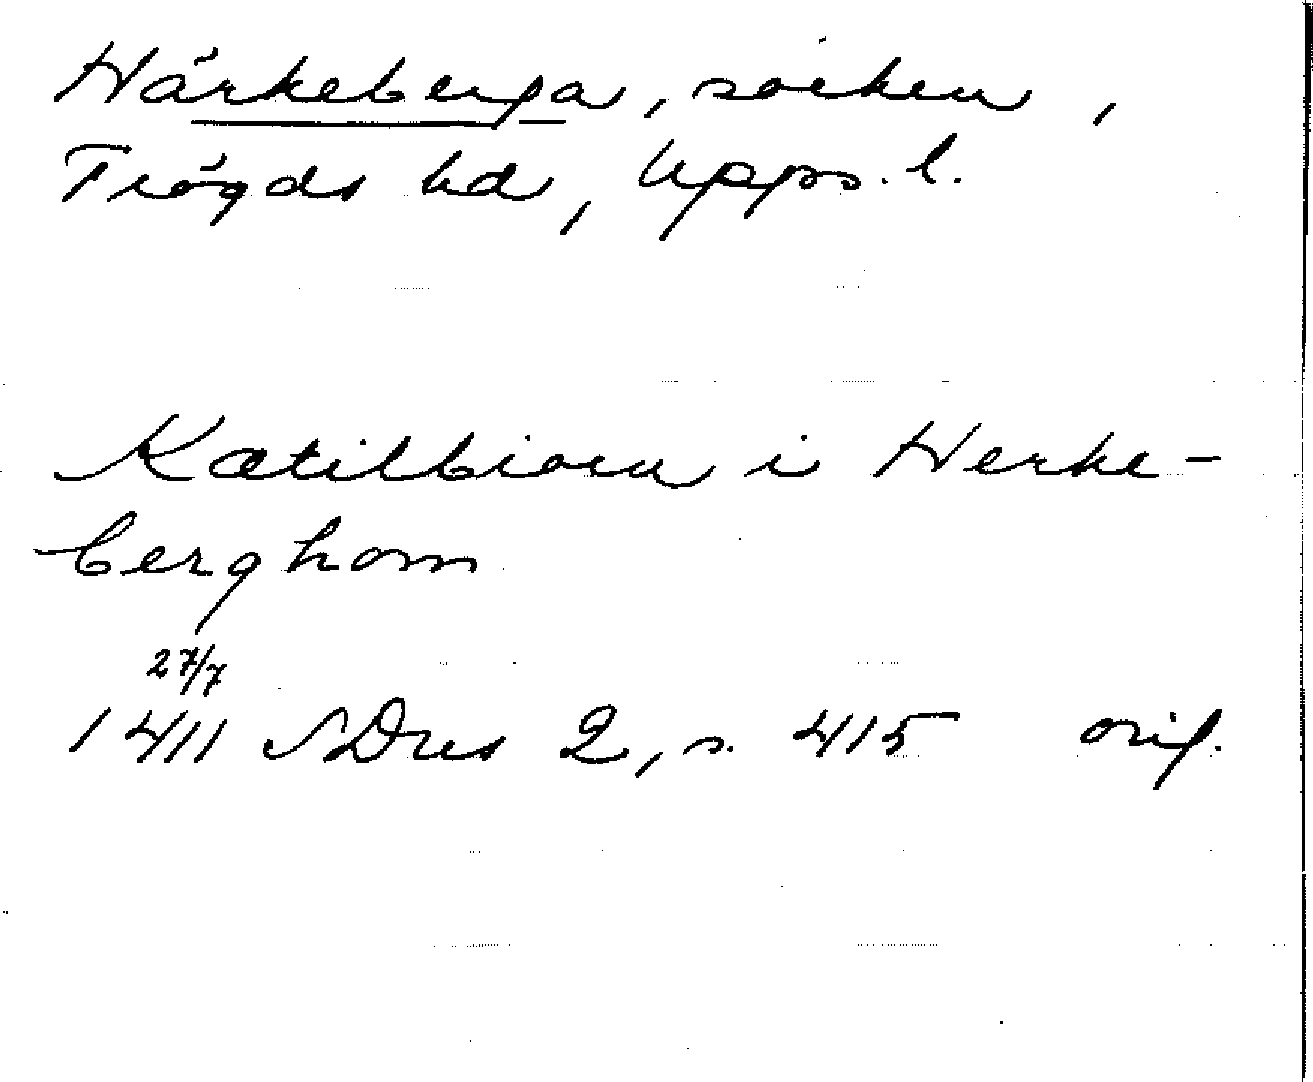 Härkeberga, socken,
Trögds hd, Upps. l.
Kætilbiorn i Herke-
berghom
27/7
1411 SDns 2, s. 415 orig.